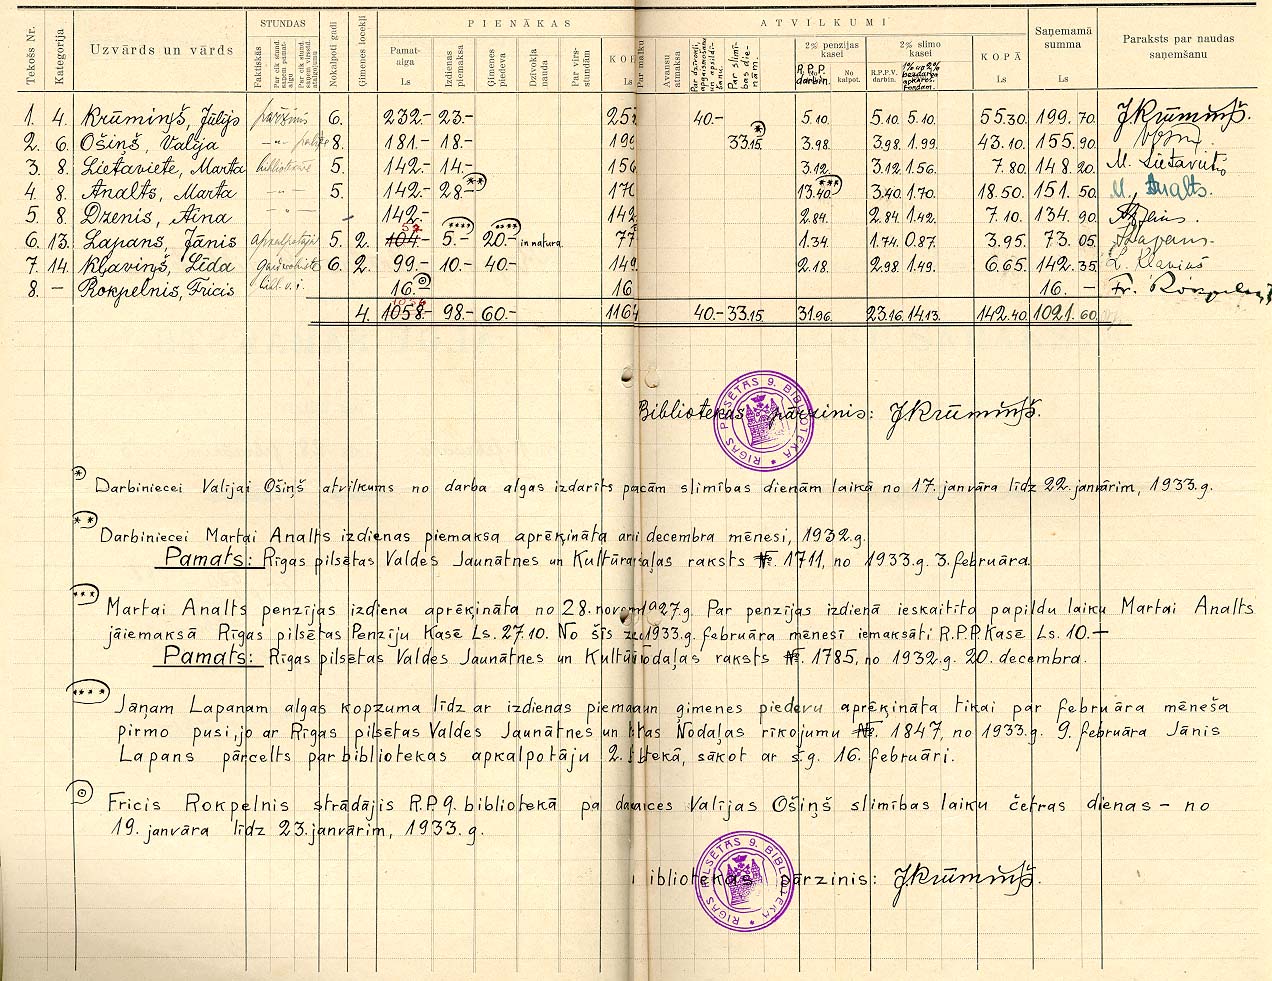 STUNDAS PIENĀKAS ATVILKUMI
Tekošs Nr. Kategorija Uzvārds un vārds Faktiskās Nokalpoti gadi Ģimenes locekļi Pamat-alga Ls Izdienas piemaksa Ģimenes piedeva Dzīvokļa nauda Par virs-stundām KO Ls Par malku Avansu atmaksa Par slimī-bas die-nām. 2% penzijas kasei R.P.P. darbin. No kalpot. 2% slimo kasei R.P.P.V. darbin. KOPĀ Ls Saņemamā summa Ls Paraksts par naudas saņemšanu
1. 4. Krūmiņš, Jūlijs pārzinis 6. 232.- 23.- 40.- 5.10. 5.10. 5.10. 55.30. 199. 70. J.Krūmiņš.
2. 6. Ošiņš, Valija 8. 181.- 18.- 199 33.15. 3.98. 3.98. 1.99. 43.10. 155. 90.
3. 8. Lietaviete, Marta 5. 142.- 14.- 156 3.12. 3.12. 1.56. 7.80. 148. 20. M. Lietaviete
4. 8. Analts, Marta 5. 142.- 28.- 170 13.40. 3.40. 1.70. 18.50. 151. 50. M. Analts.
5. 8. Dzenis, Aina 142.- 142 2.84. 2.84. 1.42. 7.10. 134. 90.
6. 13. Lapans, Jānis 5. 2. 52 104.- 5.- 20.- in natura 77 1.34. 1.74. 0.87. 3.95. 73. 05.
7. 14. Kļaviņš, Līda 6. 2. 99.- 10.- 40.- 149 2.18. 2.98. 1.49. 6.65. 142. 35. L. Klaviņš
8. — Rokpelnis, Fricis 16.- 16 16. — Fr. Rokpelnis
4. 1058.- 98.- 60.- 1164 40.- 33.15. 31.96. 23.16. 14.13. 142.40. 1021. 60.
RĪGAS PILSĒTAS 9. BIBLIOTĒKA
Bibliotekas pārzinis: J.Krūmiņš.
* Darbiniecei Valijai Ošiņš atvilkums no darba algas izdarīts pacām slimības dienām laikā no 17. janvāra līdz 22. janvārim, 1933.g.
** Darbiniecei Martai Analts izdienas piemaksa aprēķināta arī decembra mēnesi, 1932.g.
Pamats: Rīgas pilsētas Valdes Jaunātnes un Kultūr aļas raksts №. 1711, no 1933.g. 3. februāra.
*** Martai Analts penzijas izdiena aprēķināta no 28. novem 1927.g. Par penzijas izdienā ieskaitīto papildu laiku Martai Analts
jāiemaksā Rīgas pilsētas Penziju Kasē Ls. 27.10. No šīs 1933.g. februāra mēnesī iemaksāti R.P.P.Kasē Ls. 10.—
Pamats: Rīgas pilsētas Valdes Jaunātnes un Kultūr odaļas raksts №. 1785, no 1932.g. 20. decembra.
**** Jāņam Lapanam algas kopzuma līdz ar izdienas piema un ģimenes piedevu aprēķināta tikai par februāra mēneša
pirmo pusi, jo ar Rīgas pilsētas Valdes Jaunātnes un Nodaļas rīkojumu №. 1847, no 1933.g. 9. februāra Jānis
Lapans pārcelts par bibliotekas apkalpotāju 2. tekā, sākot ar š.g. 16. februāri.
Fricis Rokpelnis strādājis R.P.9. bibliotekā pa da Valijas Ošiņš slimības laiku četras dienas – no
19. janvāra līdz 23. janvārim, 1933.g.
RĪGAS PILSĒTAS 9. BIBLIOTĒKA
ibliotekas pārzinis: J.Krūmiņš.